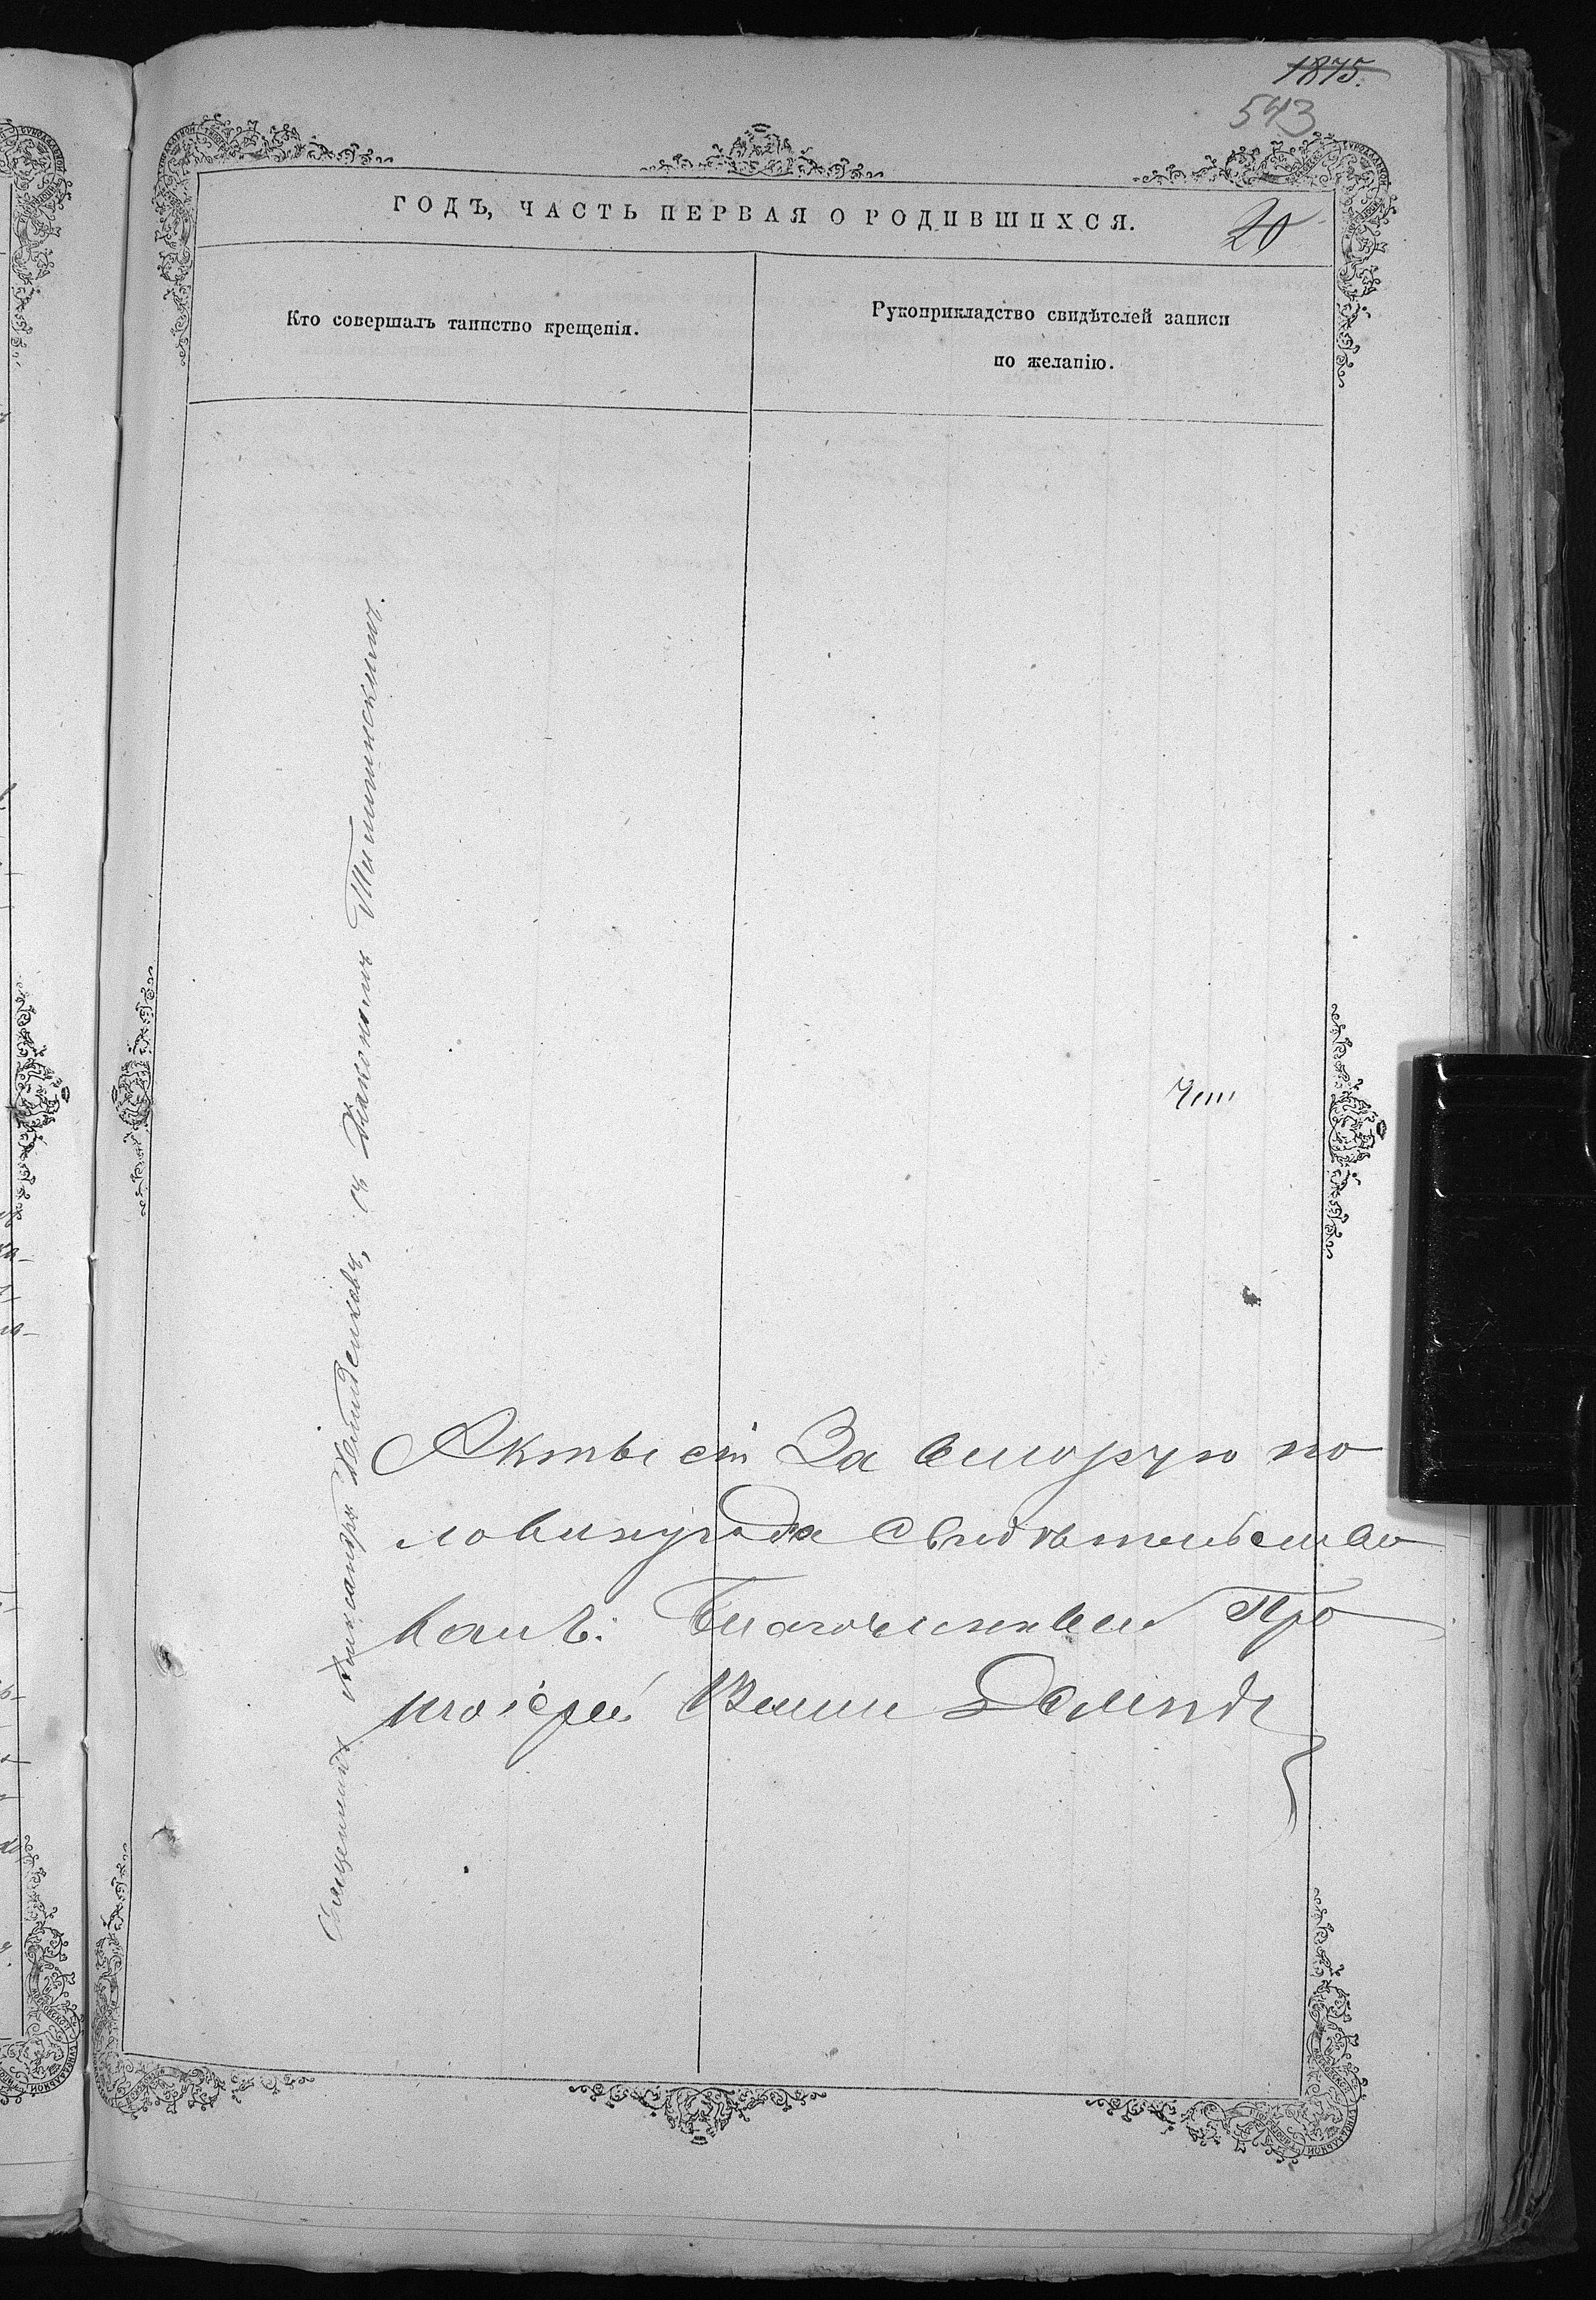 1875.
543
ГОДЪ, ЧАСТЬ ПЕРВАЯ О РОДИВШИХСЯ.
20
Кто совершалъ таинство крещенія.
Рукоприкладство свидѣтелей записи
по желанію.
Священникъ Александръ съ Діакономъ
Акты сіи За вторую по
ловину года свидѣтельство
валъ: Благочинный Про
тоіерей